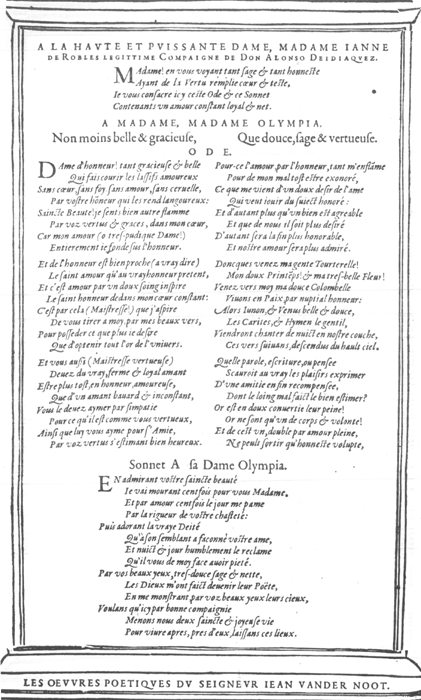 A LA HAVTE ET PVISSANTE DAME, MADAME IANNE
DE ROBLES LEGITTIME COMPAIGNE DE DON ALONSO DEIDIAQVEZ.
Madame! en vous voyant tant sage & tant honneste
Ayant de la Vertu remplie cœur & teste,
Ie vous consacre icy ceste Ode & ce Sonnet
Contenants vn amour constant loyal & net.
A MADAME, MADAME OLYMPIA.
Non moins belle & gracieuse, Que douce, sage & vertueuse.
ODE.
Dame d'honneur! tant gracieuse & belle
Qui fais courir les lassifs amoureux
Sans cœur, sans foy, sans amour, sans ceruelle,
Par vostre hōneur qui les rend langoureux:
Saincte Beauté! je sents bien autre flamme
Par voz vertus & graces, dans mon cœur,
Car mon amour (o tres-pudique Dame!)
Entierement se fonde sus l'honneur.
Et de l'honneur est bien proche (a vray dire)
Le saint amour qu'au vray honneur pretent,
Et c'est amour par vn doux soing inspire
Le saint honneur dedans mon cœur constant:
C'est par cela (Maistresse!) que j'aspire
De vous tirer a moy, par mes beaux vers,
Pour posseder ce que plus je desire
Que d'optenir tout l'or de l'vniuers.
Et vous aussi (Maistresse vertueuse)
Deuez, du vray, ferme & loyal amant
Estre plus tost, en honneur, amoureuse,
Que d'vn amant bauard & inconstant,
Vous le deuez aymer par simpatie
Pour ce qu'il est comme vous vertueux,
Ainsi que luy vous ayme pour s'Amie,
Par voz vertus s'estimant bien heureux.
Pour-ce l'amour, par l'honneur, tant m'enflāme
Pour de mon mal tost estre exonoré,
Ce que me vient d'vn doux desir de l'ame
Qui veut iouir du suiect honoré:
Et d'autant plus qu'vn bien est agreable
Et que de nous il soit plus desiré
D'autant sera la fin plus honorable,
Et nostre amour sera plus admiré.
Doncques venez ma gente Tourterelle!
Mon doux Printēps! & ma tres-belle Fleur!
Venez vers moy ma douce Colombelle
Viuons en Paix par nuptial honneur:
Alors Iunon, & Venus belle & douce,
Les Carites, & Hymen le gentil,
Viendront chanter de nuict en nostre couche,
Ces vers suiuans, descendus du hault ciel.
Quelle parole, escriture, ou pensee
Scauroit au vray les plaisirs exprimer
D'vne amitie en fin recompensee,
Dont le loing mal faict le bien estimer?
Or est en doux conuertie leur peine!
Or ne sont qu'vn de corps & volonté!
Et de cest vn, double par amour pleine,
Ne peult sortir qu'honneste volupte,
Sonnet A sa Dame Olympia.
En admirant vostre saincte beauté
Ie vai mourant cent fois pour vous Madame.
Et par amour cent fois le jour me pame
Par la rigueur de vostre chasteté:
Puis adorant la vraye Deité
Qu'a son semblant a façonné vostre ame,
Et nuict & jour humblement le reclame
Qu'il vous de moy face auoir pieté.
Par vos beaux yeux, tres-douce sage & nette,
Les Dieux m'ont faict deuenir leur Poëte,
En me monstrant par voz beaux yeux leurs cieux,
Voulans qu'icy par bonne compaignie
Menons nous deux saincte & joyeuse vie
Pour viure apres, pres d'eux, laissans ces lieux.
LES OEUVRES POETIQVES DV SEIGNEVR IEAN VANDER NOOT.